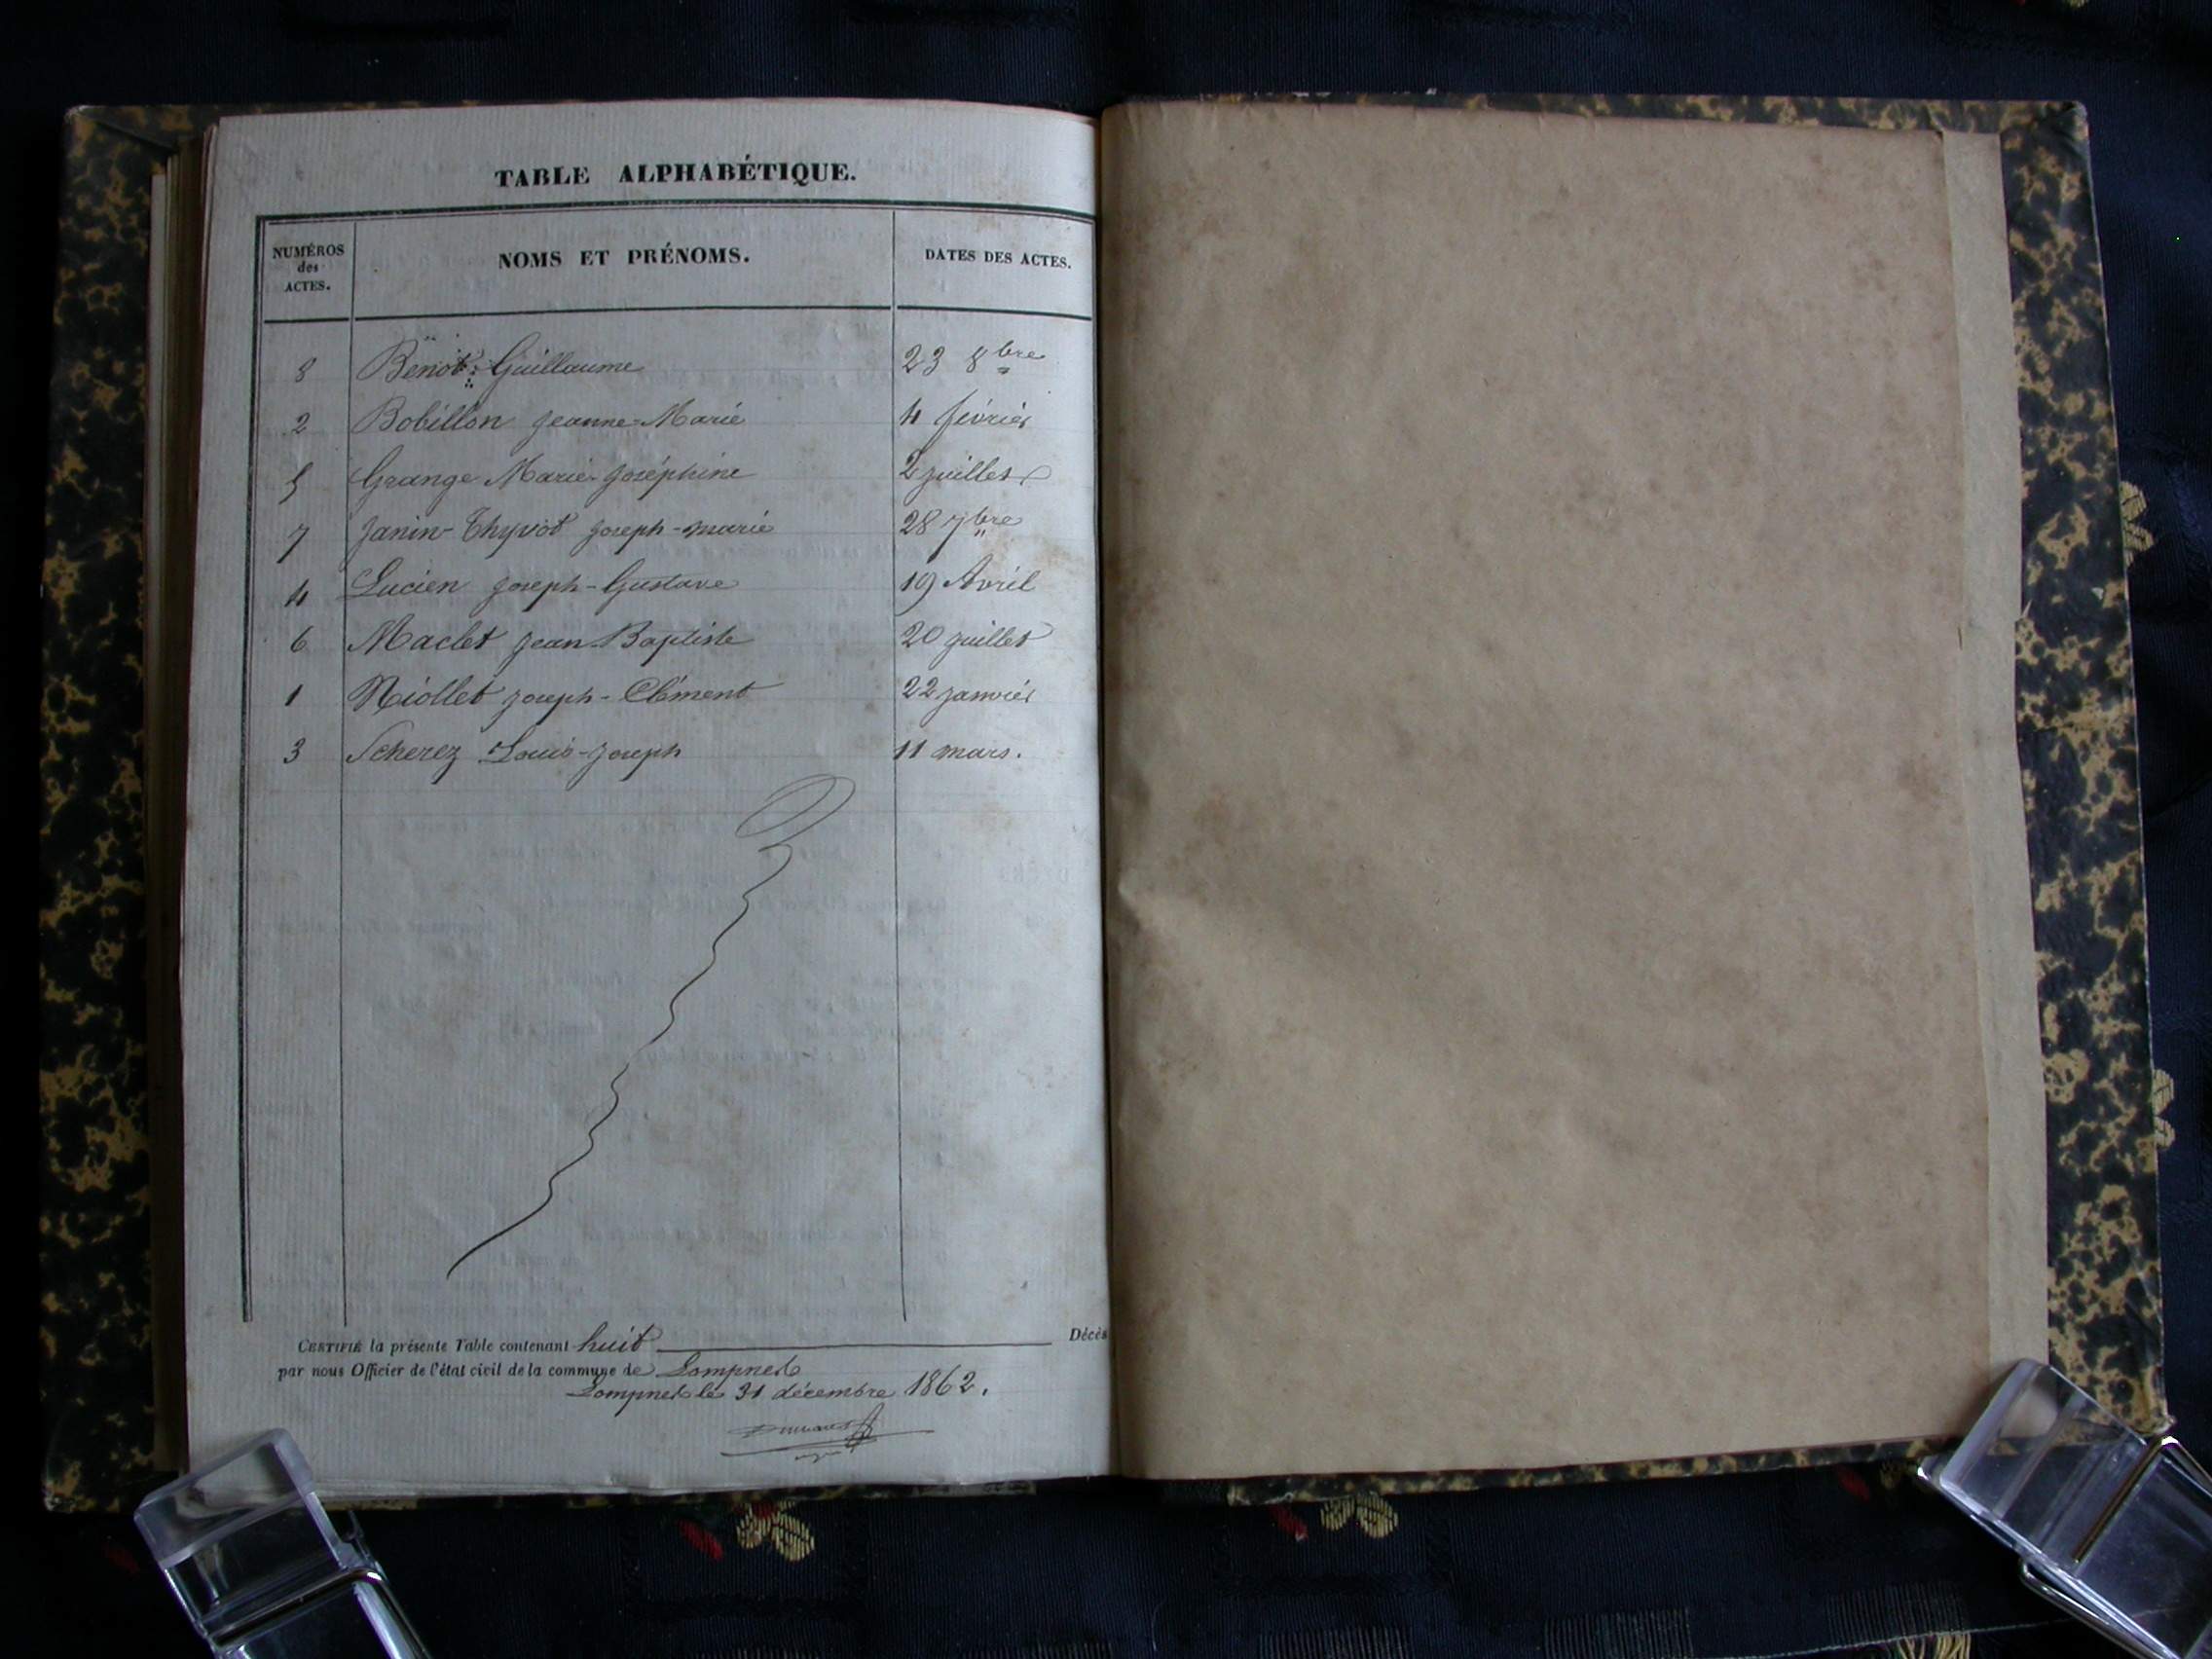 TABLE ALPHABÉTIQUE.
NUMÉROS des ACTES. NOMS ET PRÉNOMS. DATES DES ACTES.
8 Benot Guillaume 23 8bre
2 Bobillon Jeanne-Marie 4 février
5 Grange Marie-Joséphine 2 juillet
7 Janin-Thyvot Joseph-marie 28 7bre
4 Lucien Joseph-Gustave 19 Avril
6 Maclet Jean-Baptiste 20 juillet
1 Niollet Joseph-Clément 22 janvier
3 Scherez Louis-Joseph 11 mars.
CERTIFIÉ la présente Table contenant huit Décès
par nous Officier de l'état civil de la commune de Lompnes
Lompnes le 31 décembre 1862.